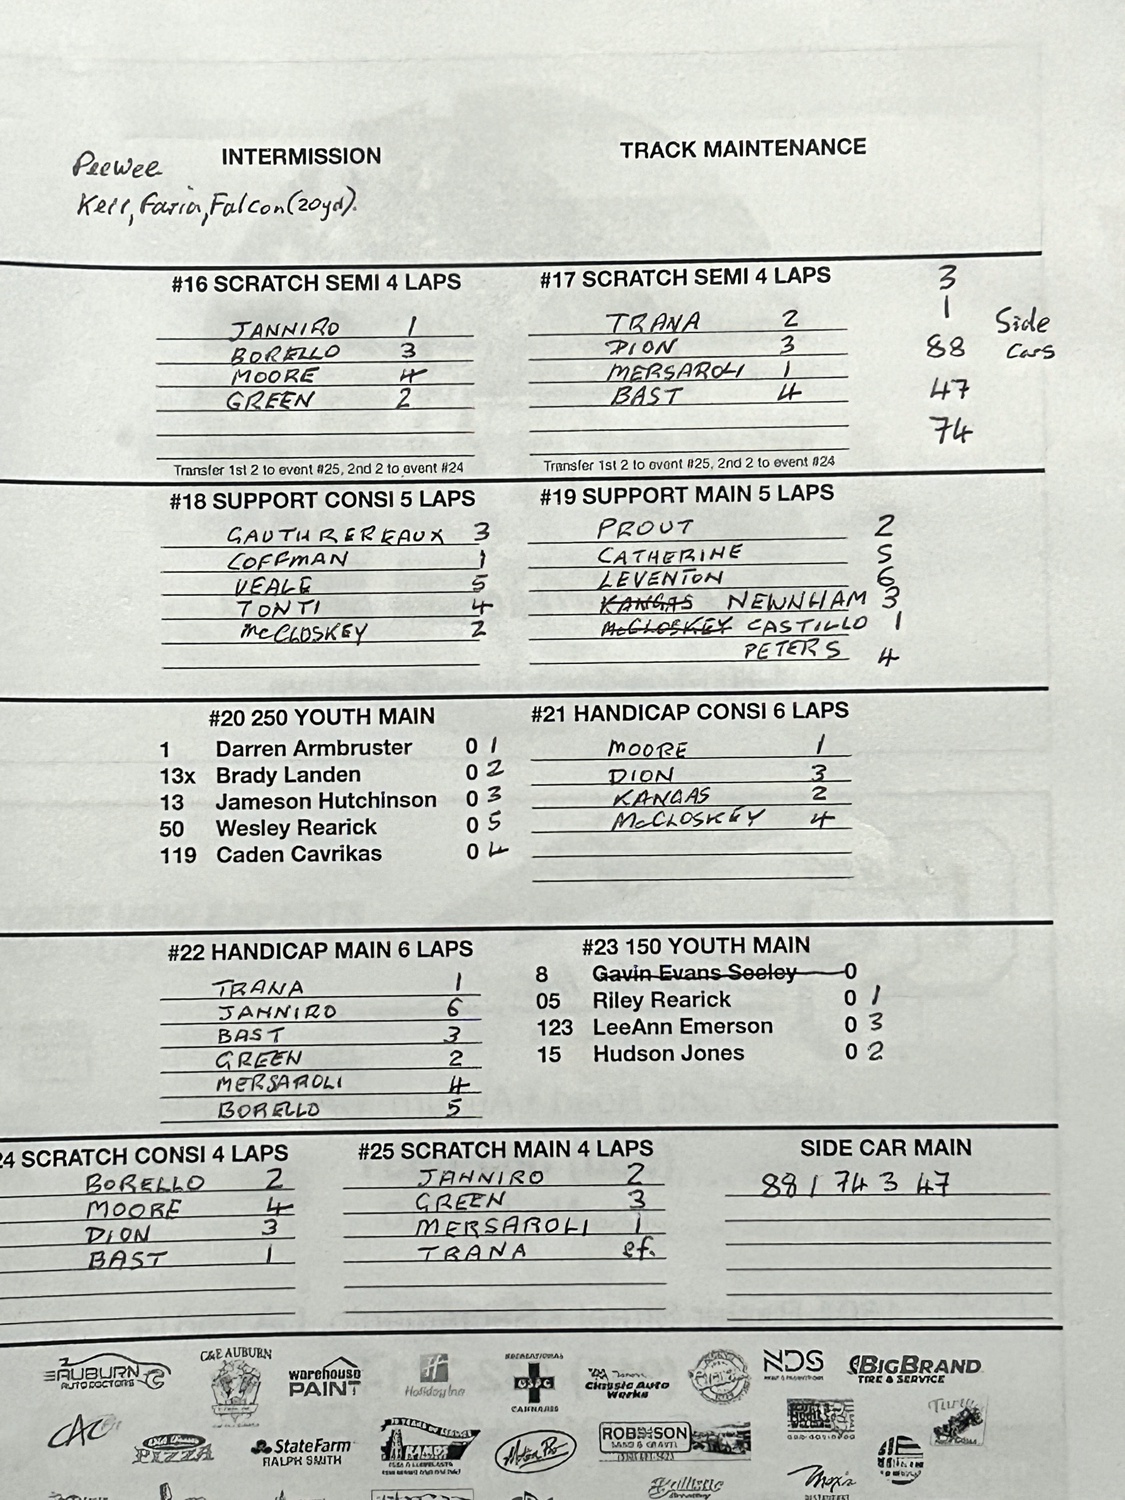 INTERMISSION
TRACK MAINTENANCE
PeeWee
Kerr, Faria, Falcon (20yd).
#16 SCRATCH SEMI 4 LAPS
JANNIRO 1
BORELLO 3
MOORE 4
GREEN 2
Transfer 1st 2 to event #25, 2nd 2 to event #24
#17 SCRATCH SEMI 4 LAPS
TRANA 2
DION 3
MERSAROLI 1
BAST 4
Transfer 1st 2 to event #25, 2nd 2 to event #24
3
1
88
47
74
Side
Cars
#18 SUPPORT CONSI 5 LAPS
GAUTHREREAUX 3
COFFMAN 1
VEALE 5
TONTI 4
McCLOSKEY 2
#19 SUPPORT MAIN 5 LAPS
PROUT 2
CATHERINE 5
LEVENTON 6
KANGAS NEWNHAM 3
McCLOSKEY CASTILLO 1
PETERS 4
#20 250 YOUTH MAIN
1 Darren Armbruster 0 1
13x Brady Landen 0 2
13 Jameson Hutchinson 0 3
50 Wesley Rearick 0 5
119 Caden Cavrikas 0 4
#21 HANDICAP CONSI 6 LAPS
MOORE 1
DION 3
KANGAS 2
McCLOSKEY 4
#22 HANDICAP MAIN 6 LAPS
TRANA 1
JANNIRO 6
BAST 3
GREEN 2
MERSAROLI 4
BORELLO 5
#23 150 YOUTH MAIN
8 Gavin Evans Seeley 0
05 Riley Rearick 0 1
123 LeeAnn Emerson 0 3
15 Hudson Jones 0 2
24 SCRATCH CONSI 4 LAPS
BORELLO 2
MOORE 4
DION 3
BAST 1
#25 SCRATCH MAIN 4 LAPS
JANNIRO 2
GREEN 3
MERSAROLI 1
TRANA ef.
SIDE CAR MAIN
88 1 74 3 47
AUBURN
AUTO DOCTORS
C&E AUBURN
warehouse
PAINT
Holiday Inn
GSPC
CANNABIS
Classic Auto
Works
NDS
BIGBRAND
TIRE & SERVICE
PIZZA
StateFarm
RALPH SMITH
RAMOS
ROBINSON
SAND & GRAVEL